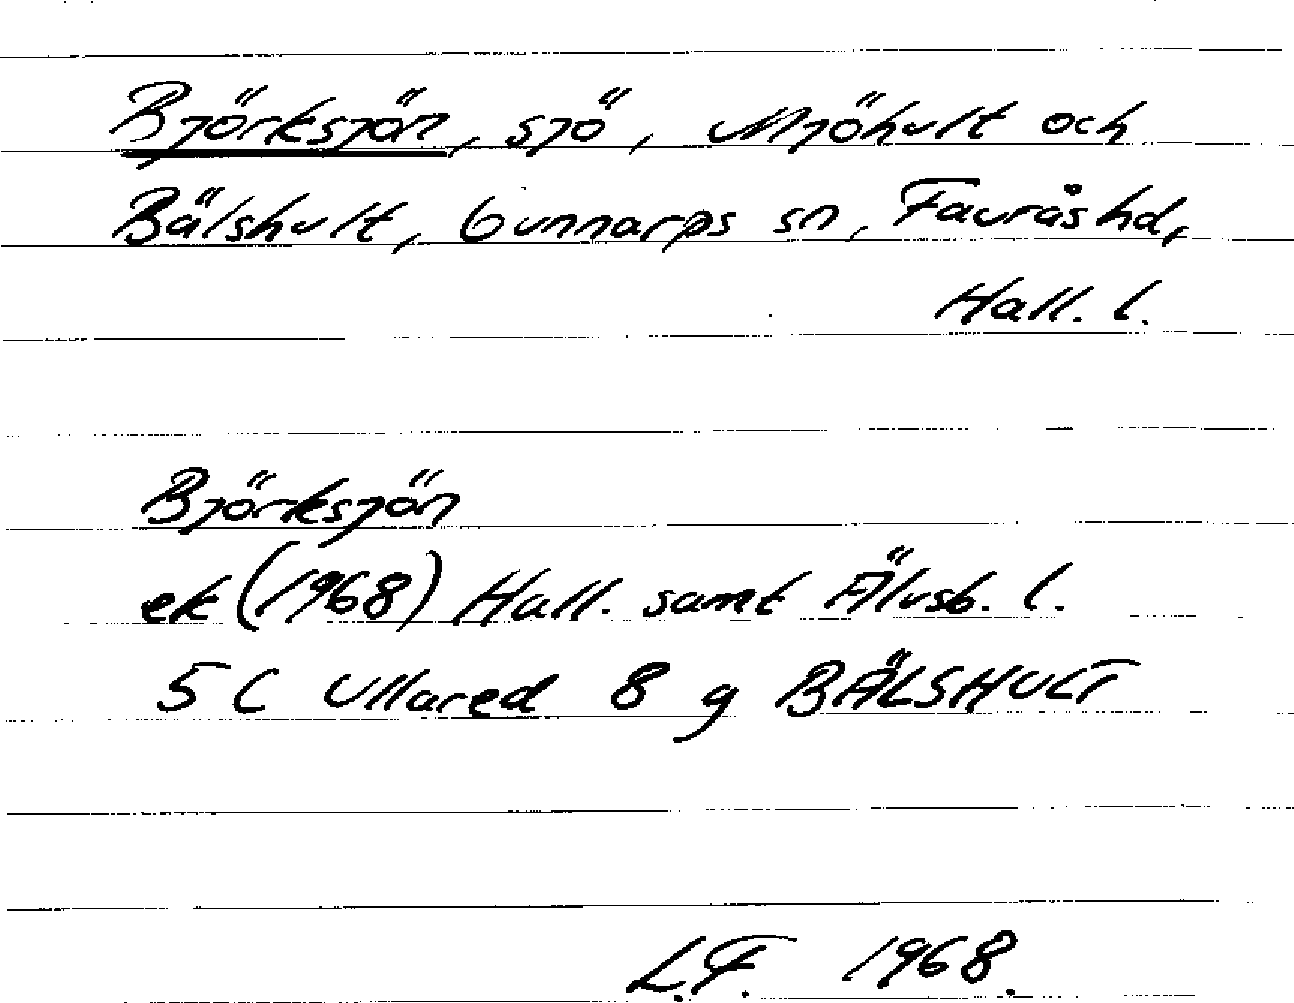 Björksjön, sjö, Mjöhult och
Bälshult, Gunnarps sn, Faurås hd,
Hall. l.
Björksjön
ek (1968) Hall. samt Älvsb. l.
5 C Ullared 8 g BÄLSHULT
L.F. 1968.